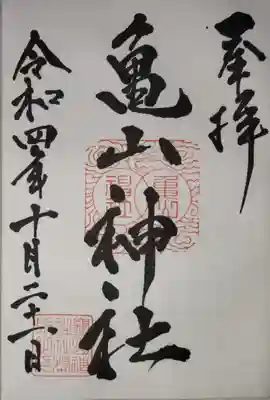 奉拝
亀山神社
令和四年十月二十 日